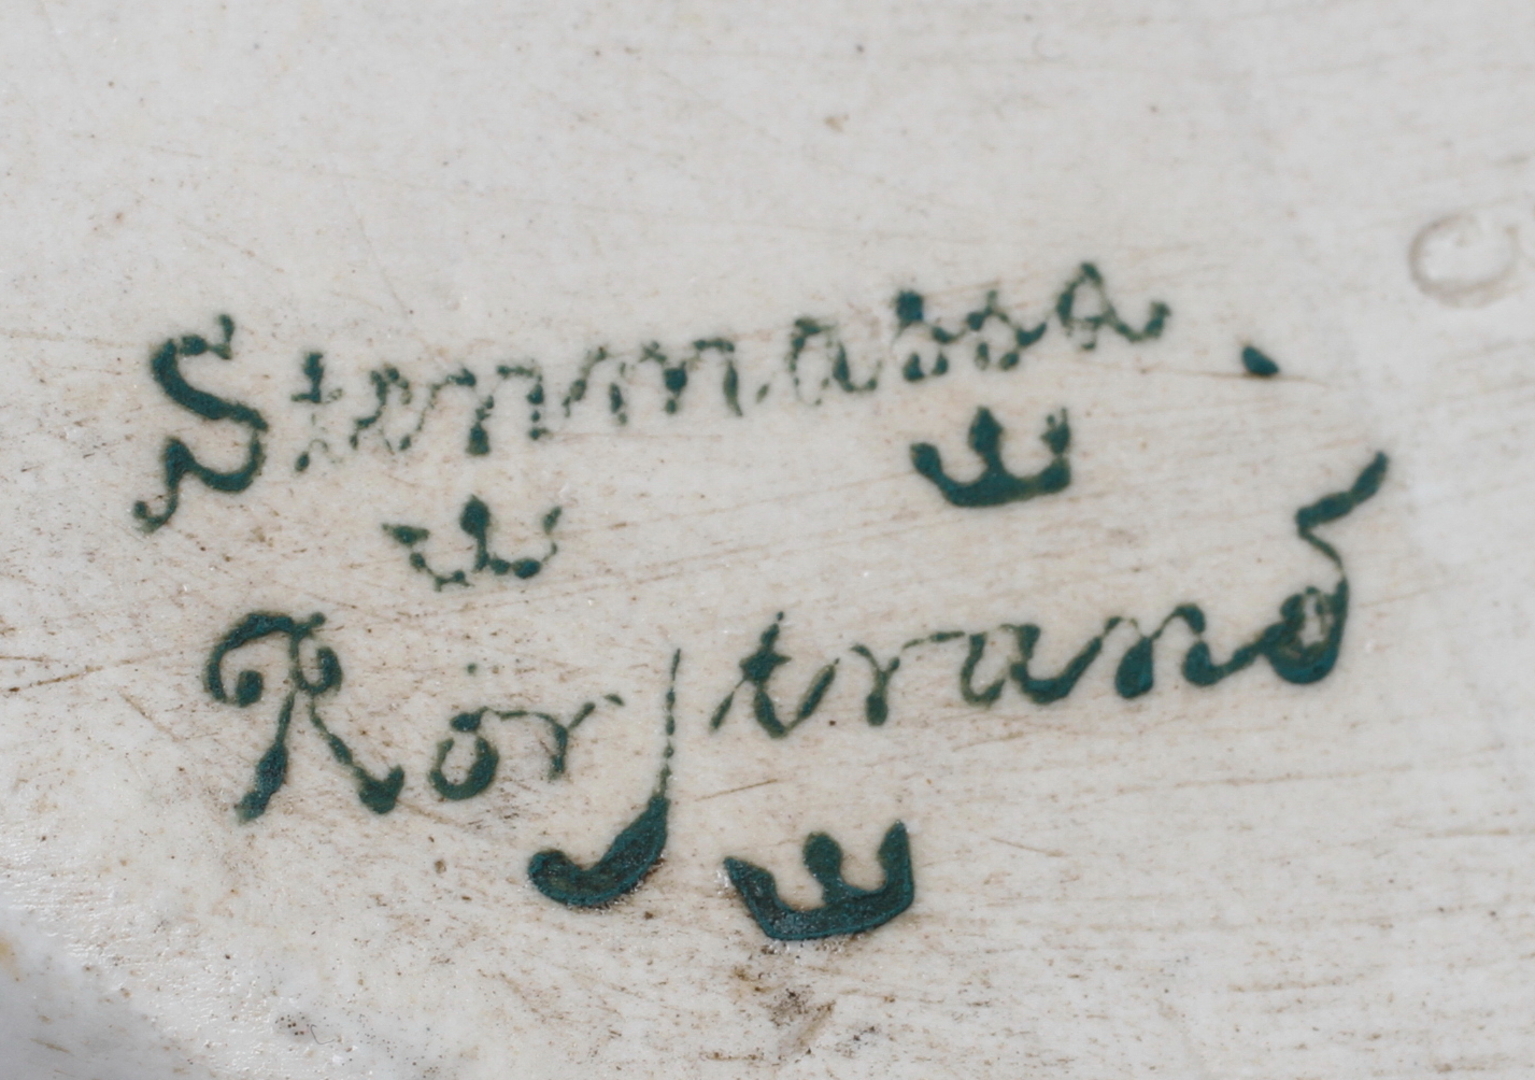 Stenmassa.
Rörstrand